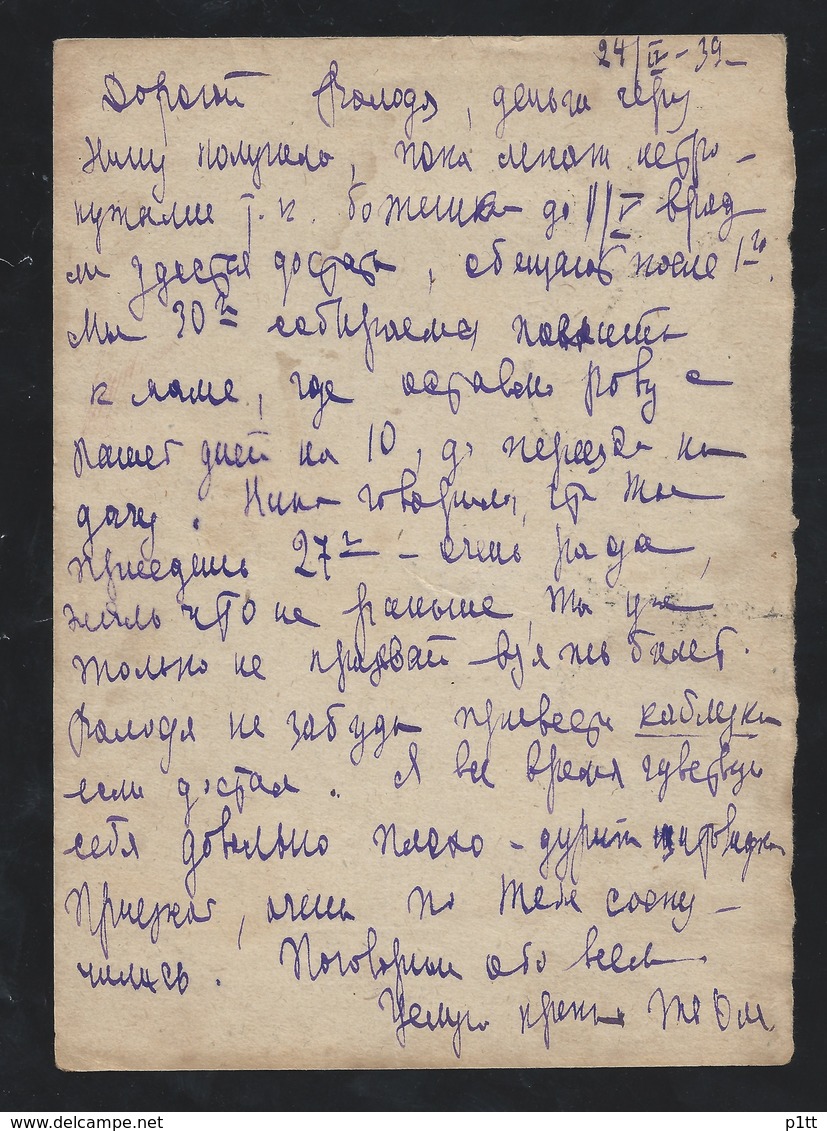 24/IV-39
Дорогой Володя, деньги через
Нину получила, пока лежат нетро-
нутыми т.к. до 1/V вряд
ли удастся достать, обещают после 1го.
Мы 30го собираемся
к маме, где оставлю Вову с
дней на 10, до переезда на
дачу. Нина говорила, что ты
приедешь 27го - очень рада,
жаль что не раньше, ты уж
только не билет.
Володя не забудь привести каблуки
если достал. Я все время чувствую
себя довольно плохо - дурит щитовидка
Приезжай, очень по тебе соску-
чилась. Поговорим обо всем
Целую крепко
p1tt